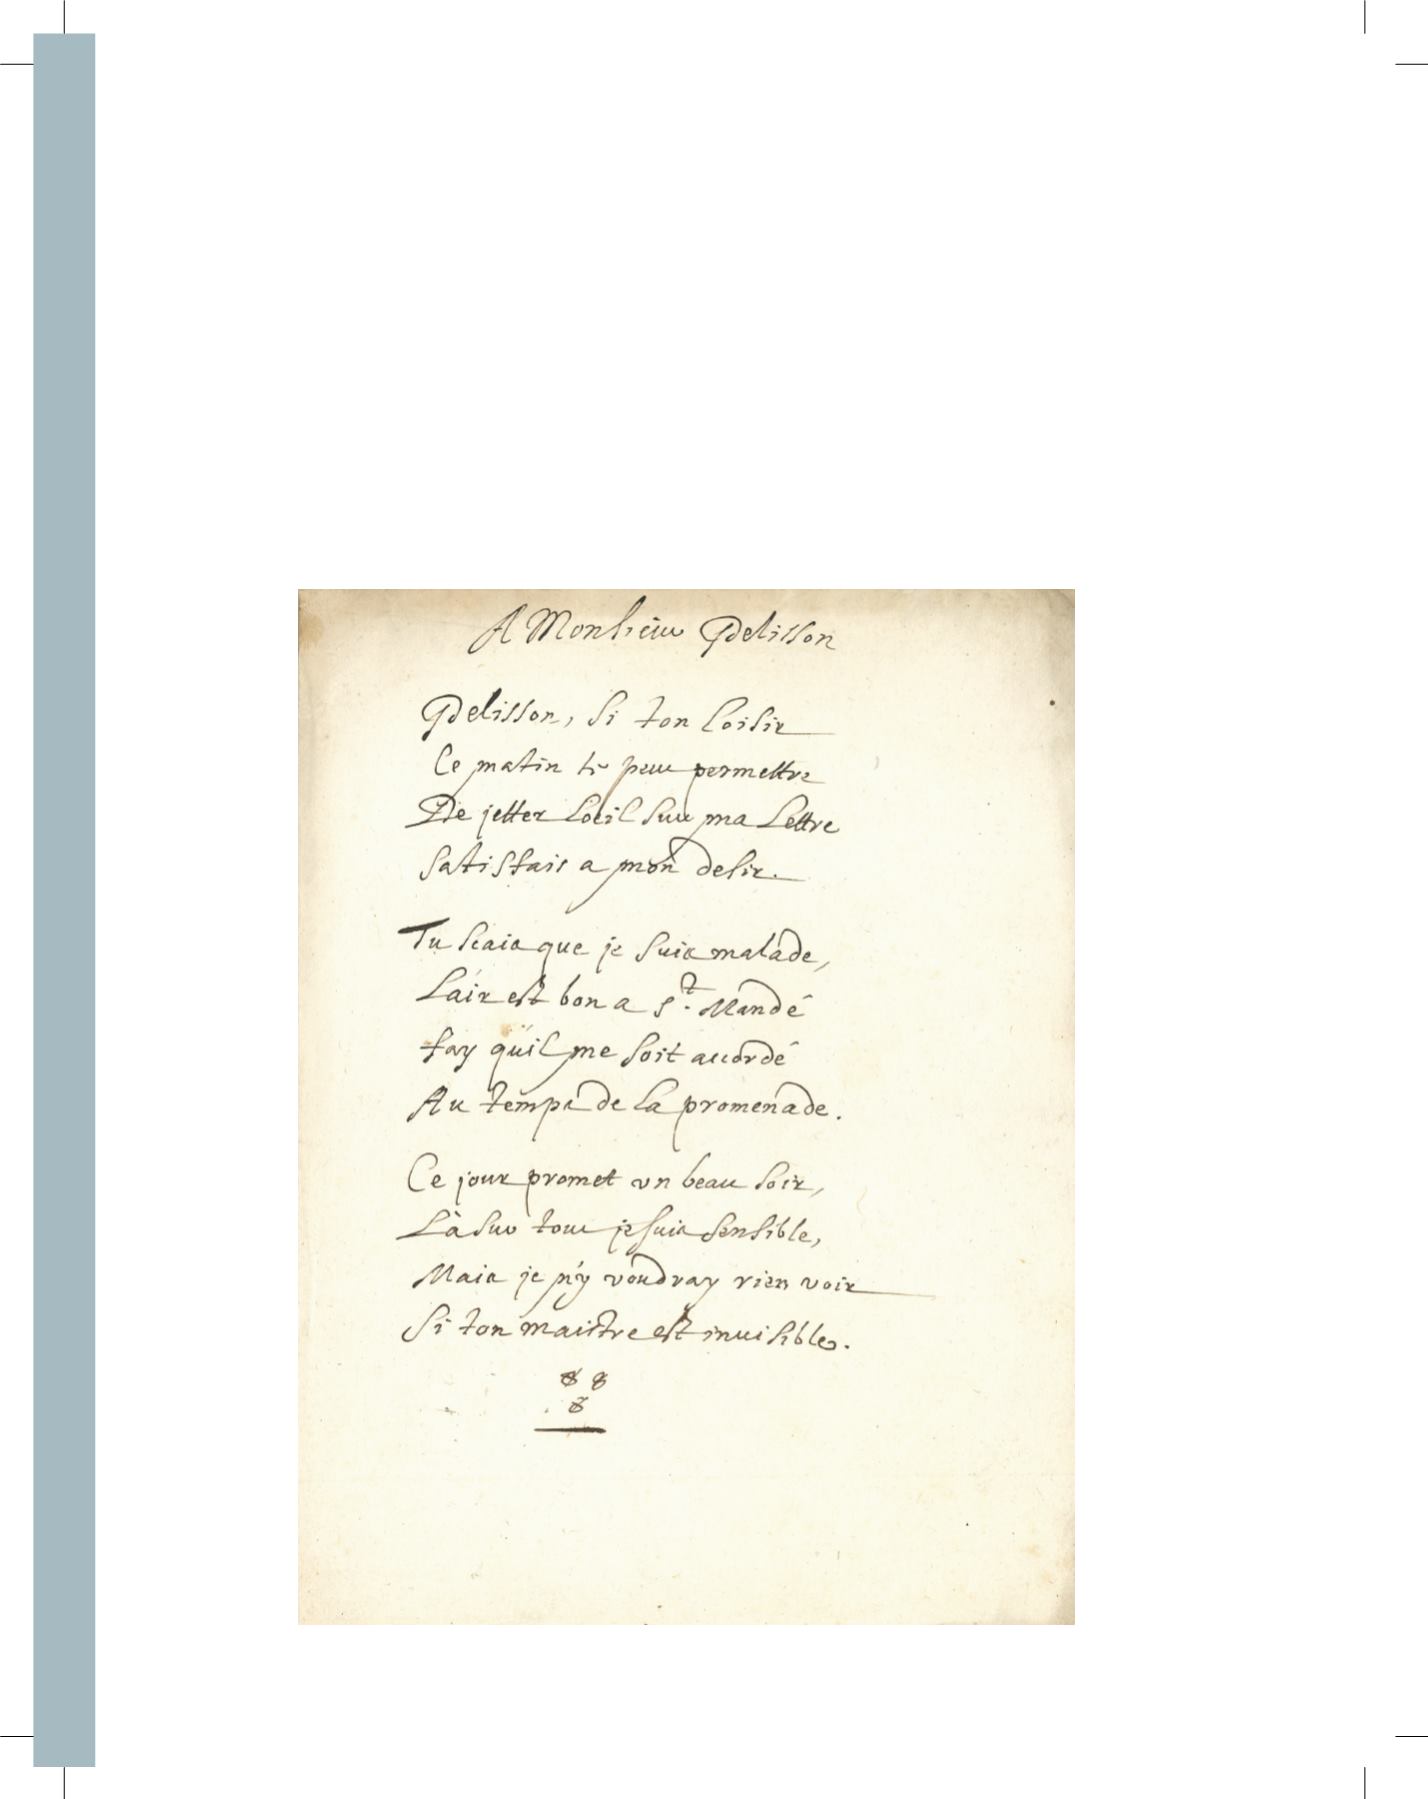 A Monsieur Pelisson
Pelisson, si ton loisir
Ce matin te peut permettre
De jetter l'oeil sur ma lettre
Satisfais a mon desir.
Tu scais que je suis malade,
L'air est bon a St. Mandé
Fay qu'il me soit accordé
Au temps de la promenade.
Ce jour promet un beau soir,
Là sur tout je suis sensible,
Mais je n'y voudray rien voir
Si ton maistre est inuisible.